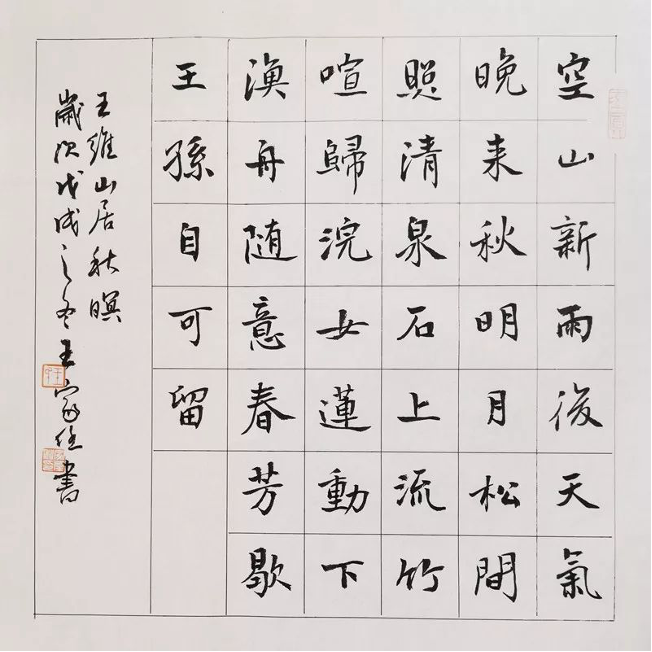 空山新雨後天氣
晚来秋明月松間
照清泉石上流竹
喧歸浣女蓮動下
渔舟随意春芳歇
王孫自可留
王維山居秋暝
歲次戊戌之冬王家佳書